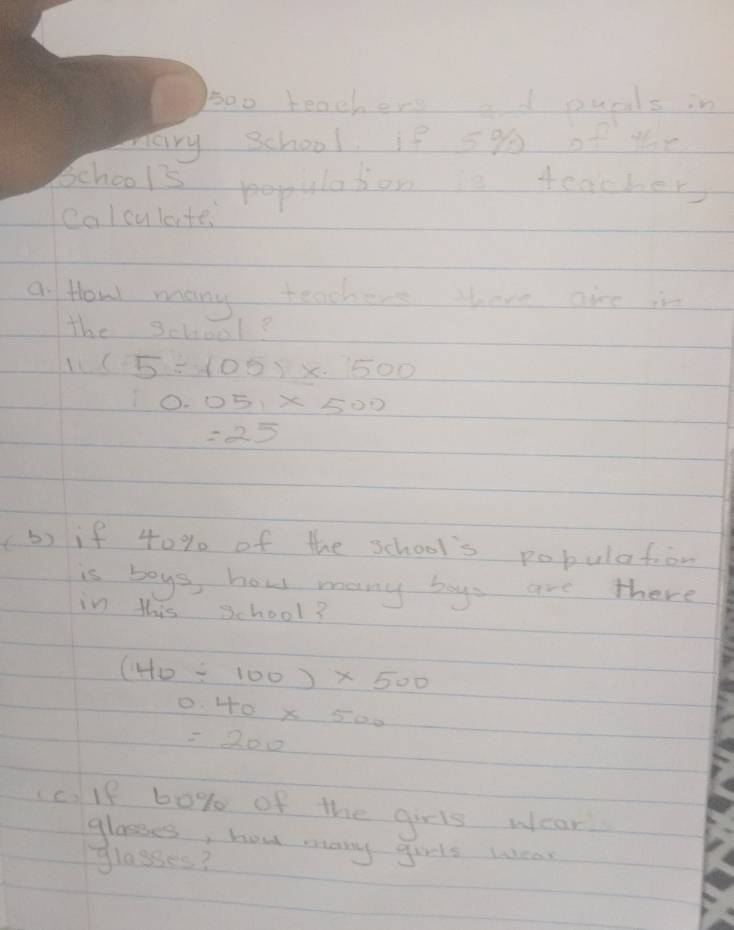 500 teachers and pupils in
school. if 5% of the
school's population is teacher,
Calculate:
a. How many teachers there are in
the school?
(5 ÷ 100) x 500
0.05 x 500
= 25
(b) if 40% of the school's population
is boys, how many boys are there
in this school?
(40 ÷ 100) x 500
0.40 x 500
= 200
(c) If 60% of the girls wear
glasses, how many girls wear
glasses?